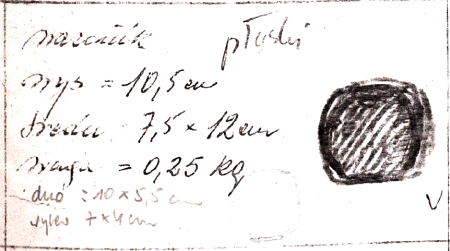 płaski
wys = 10,5 cm
średn. 7,5 x 12 cm
waga = 0,25 kg
dno : 10 x 5,5 cm
wylew 7 x 4 cm